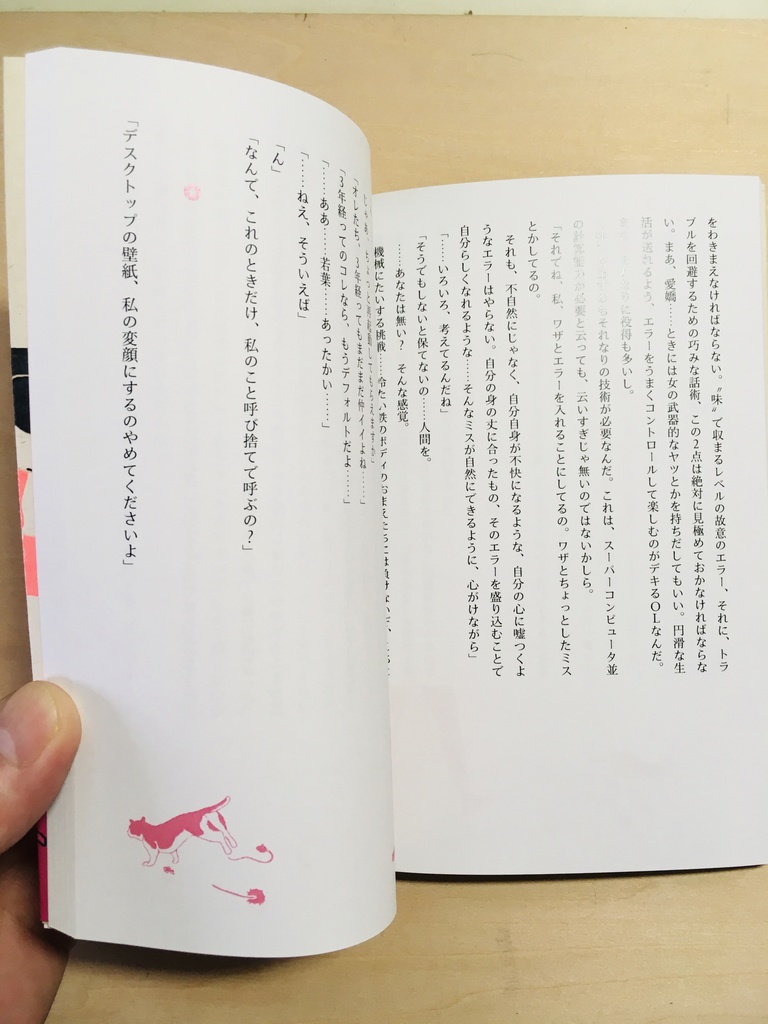 をわきまえなければならない。〝味〟で収まるレベルの故意のエラー、それに、トラ
ブルを回避するための巧みな話術、この２点は絶対に見極めておかなければならな
い。まあ、愛嬌……ときには女の武器的なヤツとかを持ちだしてもいい。円滑な生
活が送れるよう、エラーをうまくコントロールして楽しむのがデキるＯＬなんだ。
に役得も多いし。
もそれなりの技術が必要なんだ。これは、スーパーコンピュータ並
の計算能力が必要と云っても、云いすぎじゃ無いのではないかしら。
「それでね、私、ワザとエラーを入れることにしてるの。ワザとちょっとしたミス
とかしてるの。
それも、不自然にじゃなく、自分自身が不快になるような、自分の心に嘘つくよ
うなエラーはやらない。自分の身の丈に合ったもの、そのエラーを盛り込むことで
自分らしくなれるような……そんなミスが自然にできるように、心がけながら」
「……いろいろ、考えてるんだね」
「そうでもしないと保てないの……人間を。
……あなたは無い？　そんな感覚。
機械にたいする挑戦……冷たい鉄のボディのおまえたちには負けないぞ、
「オレたち、３年経ってもまだまだ仲イイよね……」
「３年経ってのコレなら、もうデフォルトだよ……」
「……ああ……若葉……あったかい……」
「……ねえ、そういえば」
「ん」
「なんで、これのときだけ、私のこと呼び捨てで呼ぶの？」
「デスクトップの壁紙、私の変顔にするのやめてくださいよ」